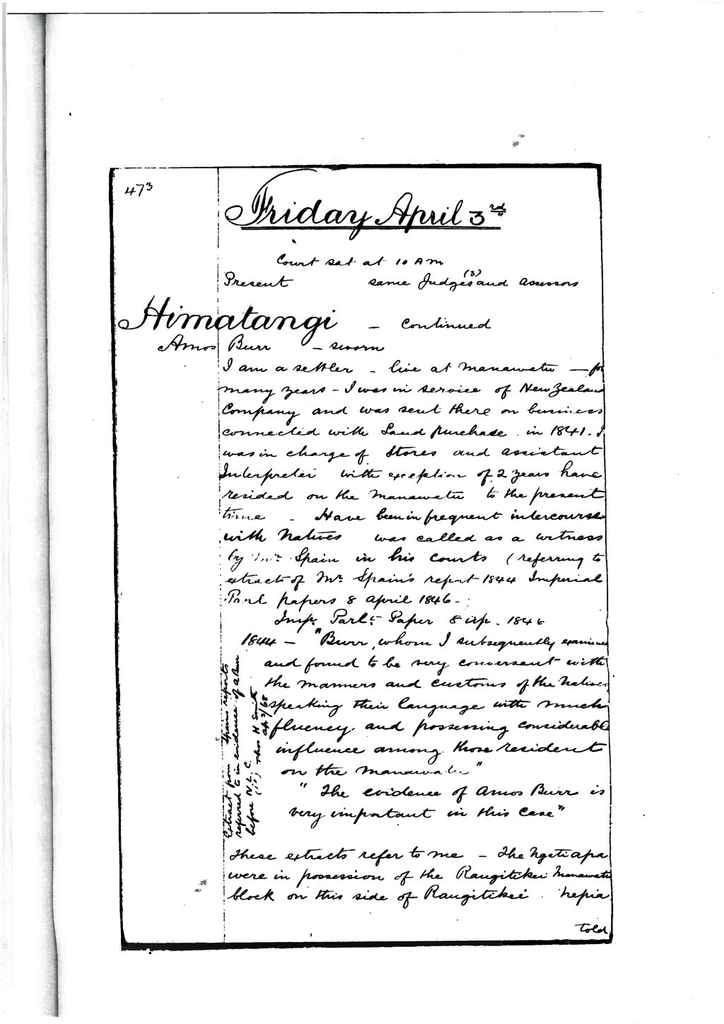 473
Friday April 3rd
Court sat at 10 AM
Present same Judges (3) and assessors
Himatangi – Continued
Amos Burr – sworn
I am a settler – live at Manawatu – for
many years – I was in service of New Zealand
Company and was sent there on business
connected with Land purchase in 1841. I
was in charge of Stores and assistant
Interpreter with exception of 2 years have
resided on the Manawatu to the present
time – Have been in frequent intercourse
with Natives was called as a witness
by Mr Spain in his courts (referring to
extract of Mr Spain's report 1844 Imperial
Parl papers 8 April 1846 –
Imp. Parlt Paper 8 Ap. 1846
1844 – "Burr, whom I subsequently examined
and found to be very conversant with
the manners and customs of the Natives
speaking their language with much
fluency and possessing considerable
influence among those resident
on the Manawatu"
"The evidence of Amos Burr is
very important in this case"
Extract from Spain's reports
referred to in evidence of A Burr
before N. L. C.
Thos H Smith
ap 3/68
These extracts refer to me – The Ngatiapa
were in possession of the Rangitikei Manawatu
block on this side of Rangitikei . Nepia
told